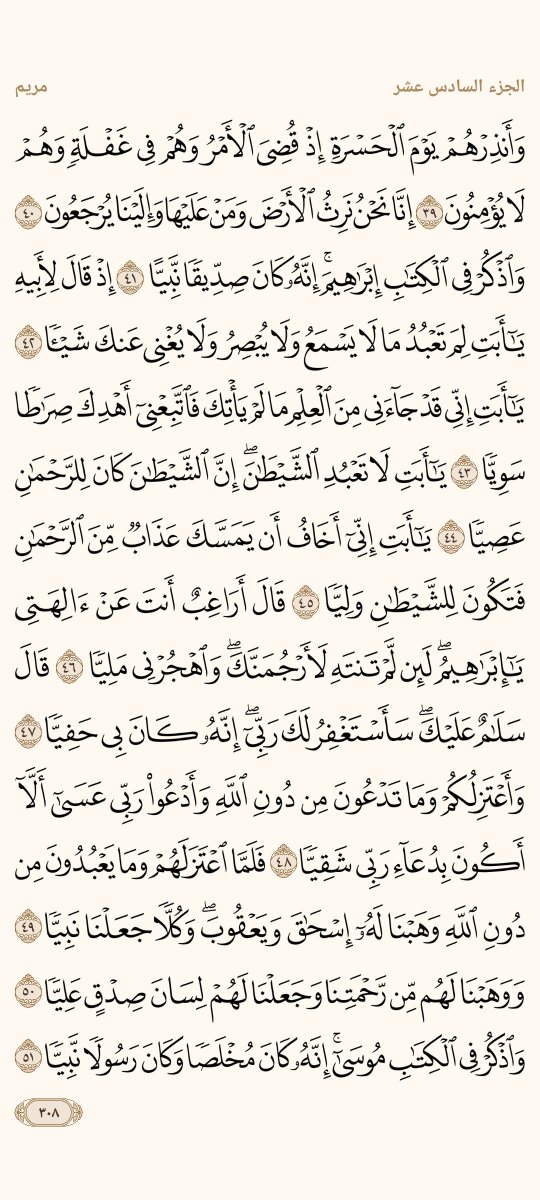 الجزء السادس عشر مريم
وَأَنذِرۡهُمۡ يَوۡمَ ٱلۡحَسۡرَةِ إِذۡ قُضِيَ ٱلۡأَمۡرُ وَهُمۡ فِي غَفۡلَةٖ وَهُمۡ
لَا يُؤۡمِنُونَ ٣٩ إِنَّا نَحۡنُ نَرِثُ ٱلۡأَرۡضَ وَمَنۡ عَلَيۡهَا وَإِلَيۡنَا يُرۡجَعُونَ ٤٠
وَٱذۡكُرۡ فِي ٱلۡكِتَٰبِ إِبۡرَٰهِيمَۚ إِنَّهُۥ كَانَ صِدِّيقٗا نَّبِيًّا ٤١ إِذۡ قَالَ لِأَبِيهِ
يَٰٓأَبَتِ لِمَ تَعۡبُدُ مَا لَا يَسۡمَعُ وَلَا يُبۡصِرُ وَلَا يُغۡنِي عَنكَ شَيۡـٔٗا ٤٢
يَٰٓأَبَتِ إِنِّي قَدۡ جَآءَنِي مِنَ ٱلۡعِلۡمِ مَا لَمۡ يَأۡتِكَ فَٱتَّبِعۡنِيٓ أَهۡدِكَ صِرَٰطٗا
سَوِيّٗا ٤٣ يَٰٓأَبَتِ لَا تَعۡبُدِ ٱلشَّيۡطَٰنَۖ إِنَّ ٱلشَّيۡطَٰنَ كَانَ لِلرَّحۡمَٰنِ
عَصِيّٗا ٤٤ يَٰٓأَبَتِ إِنِّيٓ أَخَافُ أَن يَمَسَّكَ عَذَابٞ مِّنَ ٱلرَّحۡمَٰنِ
فَتَكُونَ لِلشَّيۡطَٰنِ وَلِيّٗا ٤٥ قَالَ أَرَاغِبٌ أَنتَ عَنۡ ءَالِهَتِي
يَٰٓإِبۡرَٰهِيمُۖ لَئِن لَّمۡ تَنتَهِ لَأَرۡجُمَنَّكَۖ وَٱهۡجُرۡنِي مَلِيّٗا ٤٦ قَالَ
سَلَٰمٌ عَلَيۡكَۖ سَأَسۡتَغۡفِرُ لَكَ رَبِّيٓۖ إِنَّهُۥ كَانَ بِي حَفِيّٗا ٤٧
وَأَعۡتَزِلُكُمۡ وَمَا تَدۡعُونَ مِن دُونِ ٱللَّهِ وَأَدۡعُواْ رَبِّي عَسَىٰٓ أَلَّآ
أَكُونَ بِدُعَآءِ رَبِّي شَقِيّٗا ٤٨ فَلَمَّا ٱعۡتَزَلَهُمۡ وَمَا يَعۡبُدُونَ مِن
دُونِ ٱللَّهِ وَهَبۡنَا لَهُۥٓ إِسۡحَٰقَ وَيَعۡقُوبَۖ وَكُلّٗا جَعَلۡنَا نَبِيّٗا ٤٩
وَوَهَبۡنَا لَهُم مِّن رَّحۡمَتِنَا وَجَعَلۡنَا لَهُمۡ لِسَانَ صِدۡقٍ عَلِيّٗا ٥٠
وَٱذۡكُرۡ فِي ٱلۡكِتَٰبِ مُوسَىٰٓۚ إِنَّهُۥ كَانَ مُخۡلَصٗا وَكَانَ رَسُولٗا نَّبِيّٗا ٥١
٣٠٨